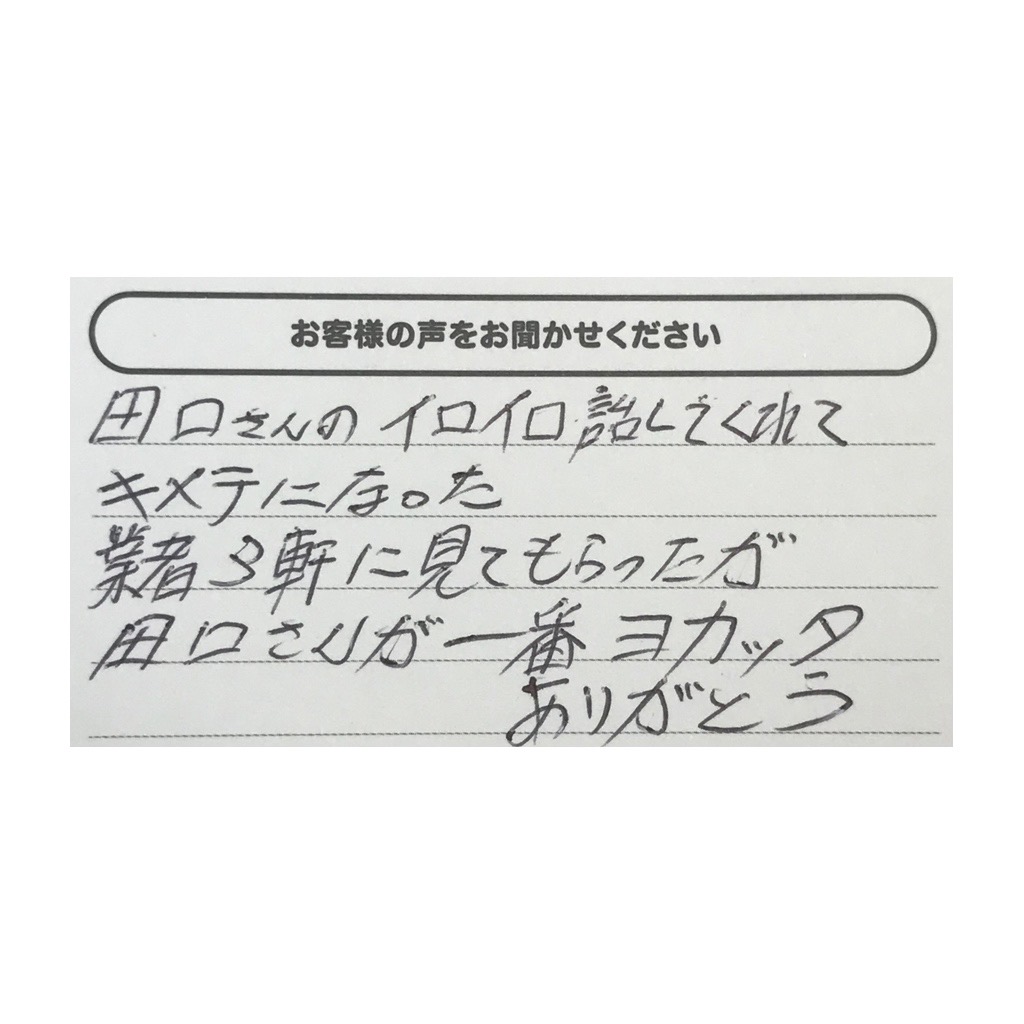 お客様の声をお聞かせください
田口さんのイロイロ話してくれて
キメテになった
業者3軒に見てもらったが
田口さんが一番ヨカッタ
ありがとう